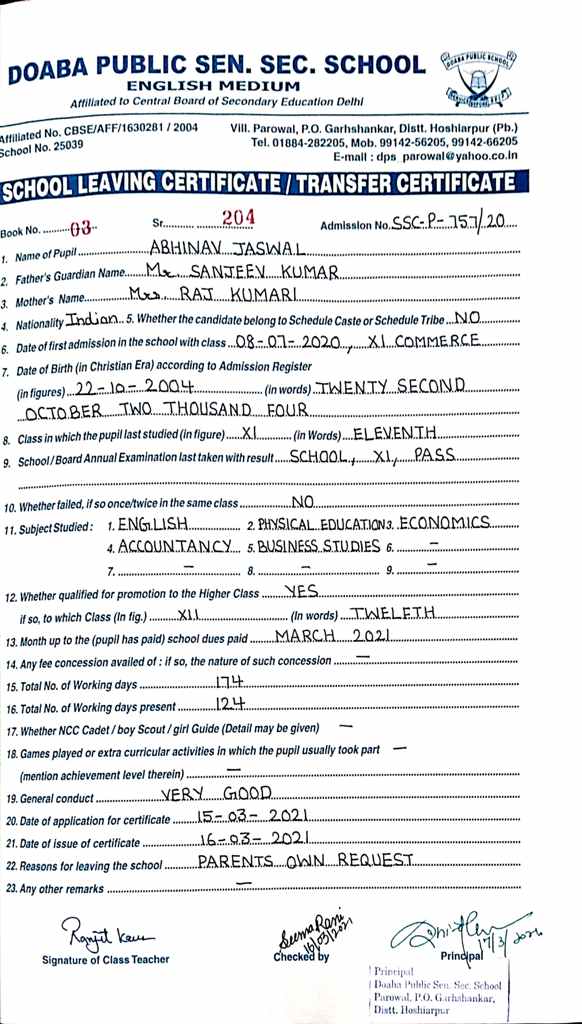 DOABA PUBLIC SEN. SEC. SCHOOL
ENGLISH MEDIUM
Affiliated to Central Board of Secondary Education Delhi
DOABA PUBLIC SCHOOL
Affiliated No. CBSE/AFF/1630281 / 2004
School No. 25039
Vill. Parowal, P.O. Garhshankar, Distt. Hoshiarpur (Pb.)
Tel. 01884-282205, Mob. 99142-56205, 99142-66205
E-mail : dps_parowal@yahoo.co.in
SCHOOL LEAVING CERTIFICATE / TRANSFER CERTIFICATE
Book No. 03 Sr. 204 Admission No. SSC-P-757/20
1. Name of Pupil ABHINAV JASWAL
2. Father's Guardian Name Mr. SANJEEV KUMAR
3. Mother's Name Mrs. RAJ KUMARI
4. Nationality Indian 5. Whether the candidate belong to Schedule Caste or Schedule Tribe NO
6. Date of first admission in the school with class 08-07-2020, XI COMMERCE
7. Date of Birth (in Christian Era) according to Admission Register
(in figures) 22-10-2004 (in words) TWENTY SECOND
OCTOBER TWO THOUSAND FOUR
8. Class in which the pupil last studied (in figure) XI (in Words) ELEVENTH
9. School / Board Annual Examination last taken with result SCHOOL, XI, PASS
10. Whether failed, if so once/twice in the same class NO
11. Subject Studied : 1. ENGLISH 2. PHYSICAL EDUCATION 3. ECONOMICS
4. ACCOUNTANCY 5. BUSINESS STUDIES 6. –
7. – 8. – 9. –
12. Whether qualified for promotion to the Higher Class YES
if so, to which Class (In fig.) XII (In words) TWELETH
13. Month up to the (pupil has paid) school dues paid MARCH 2021
14. Any fee concession availed of : if so, the nature of such concession –
15. Total No. of Working days 174
16. Total No. of Working days present 124
17. Whether NCC Cadet / boy Scout / girl Guide (Detail may be given) –
18. Games played or extra curricular activities in which the pupil usually took part –
(mention achievement level therein) –
19. General conduct VERY GOOD
20. Date of application for certificate 15-03-2021
21. Date of issue of certificate 16-03-2021
22. Reasons for leaving the school PARENTS OWN REQUEST
23. Any other remarks –
Ranjit Kaur
Signature of Class Teacher
Seema Rani
16/03/2021
Checked by
17/3/2021
Principal
Principal
Doaba Public Sen. Sec. School
Parowal, P.O. Garhshankar,
Distt. Hoshiarpur